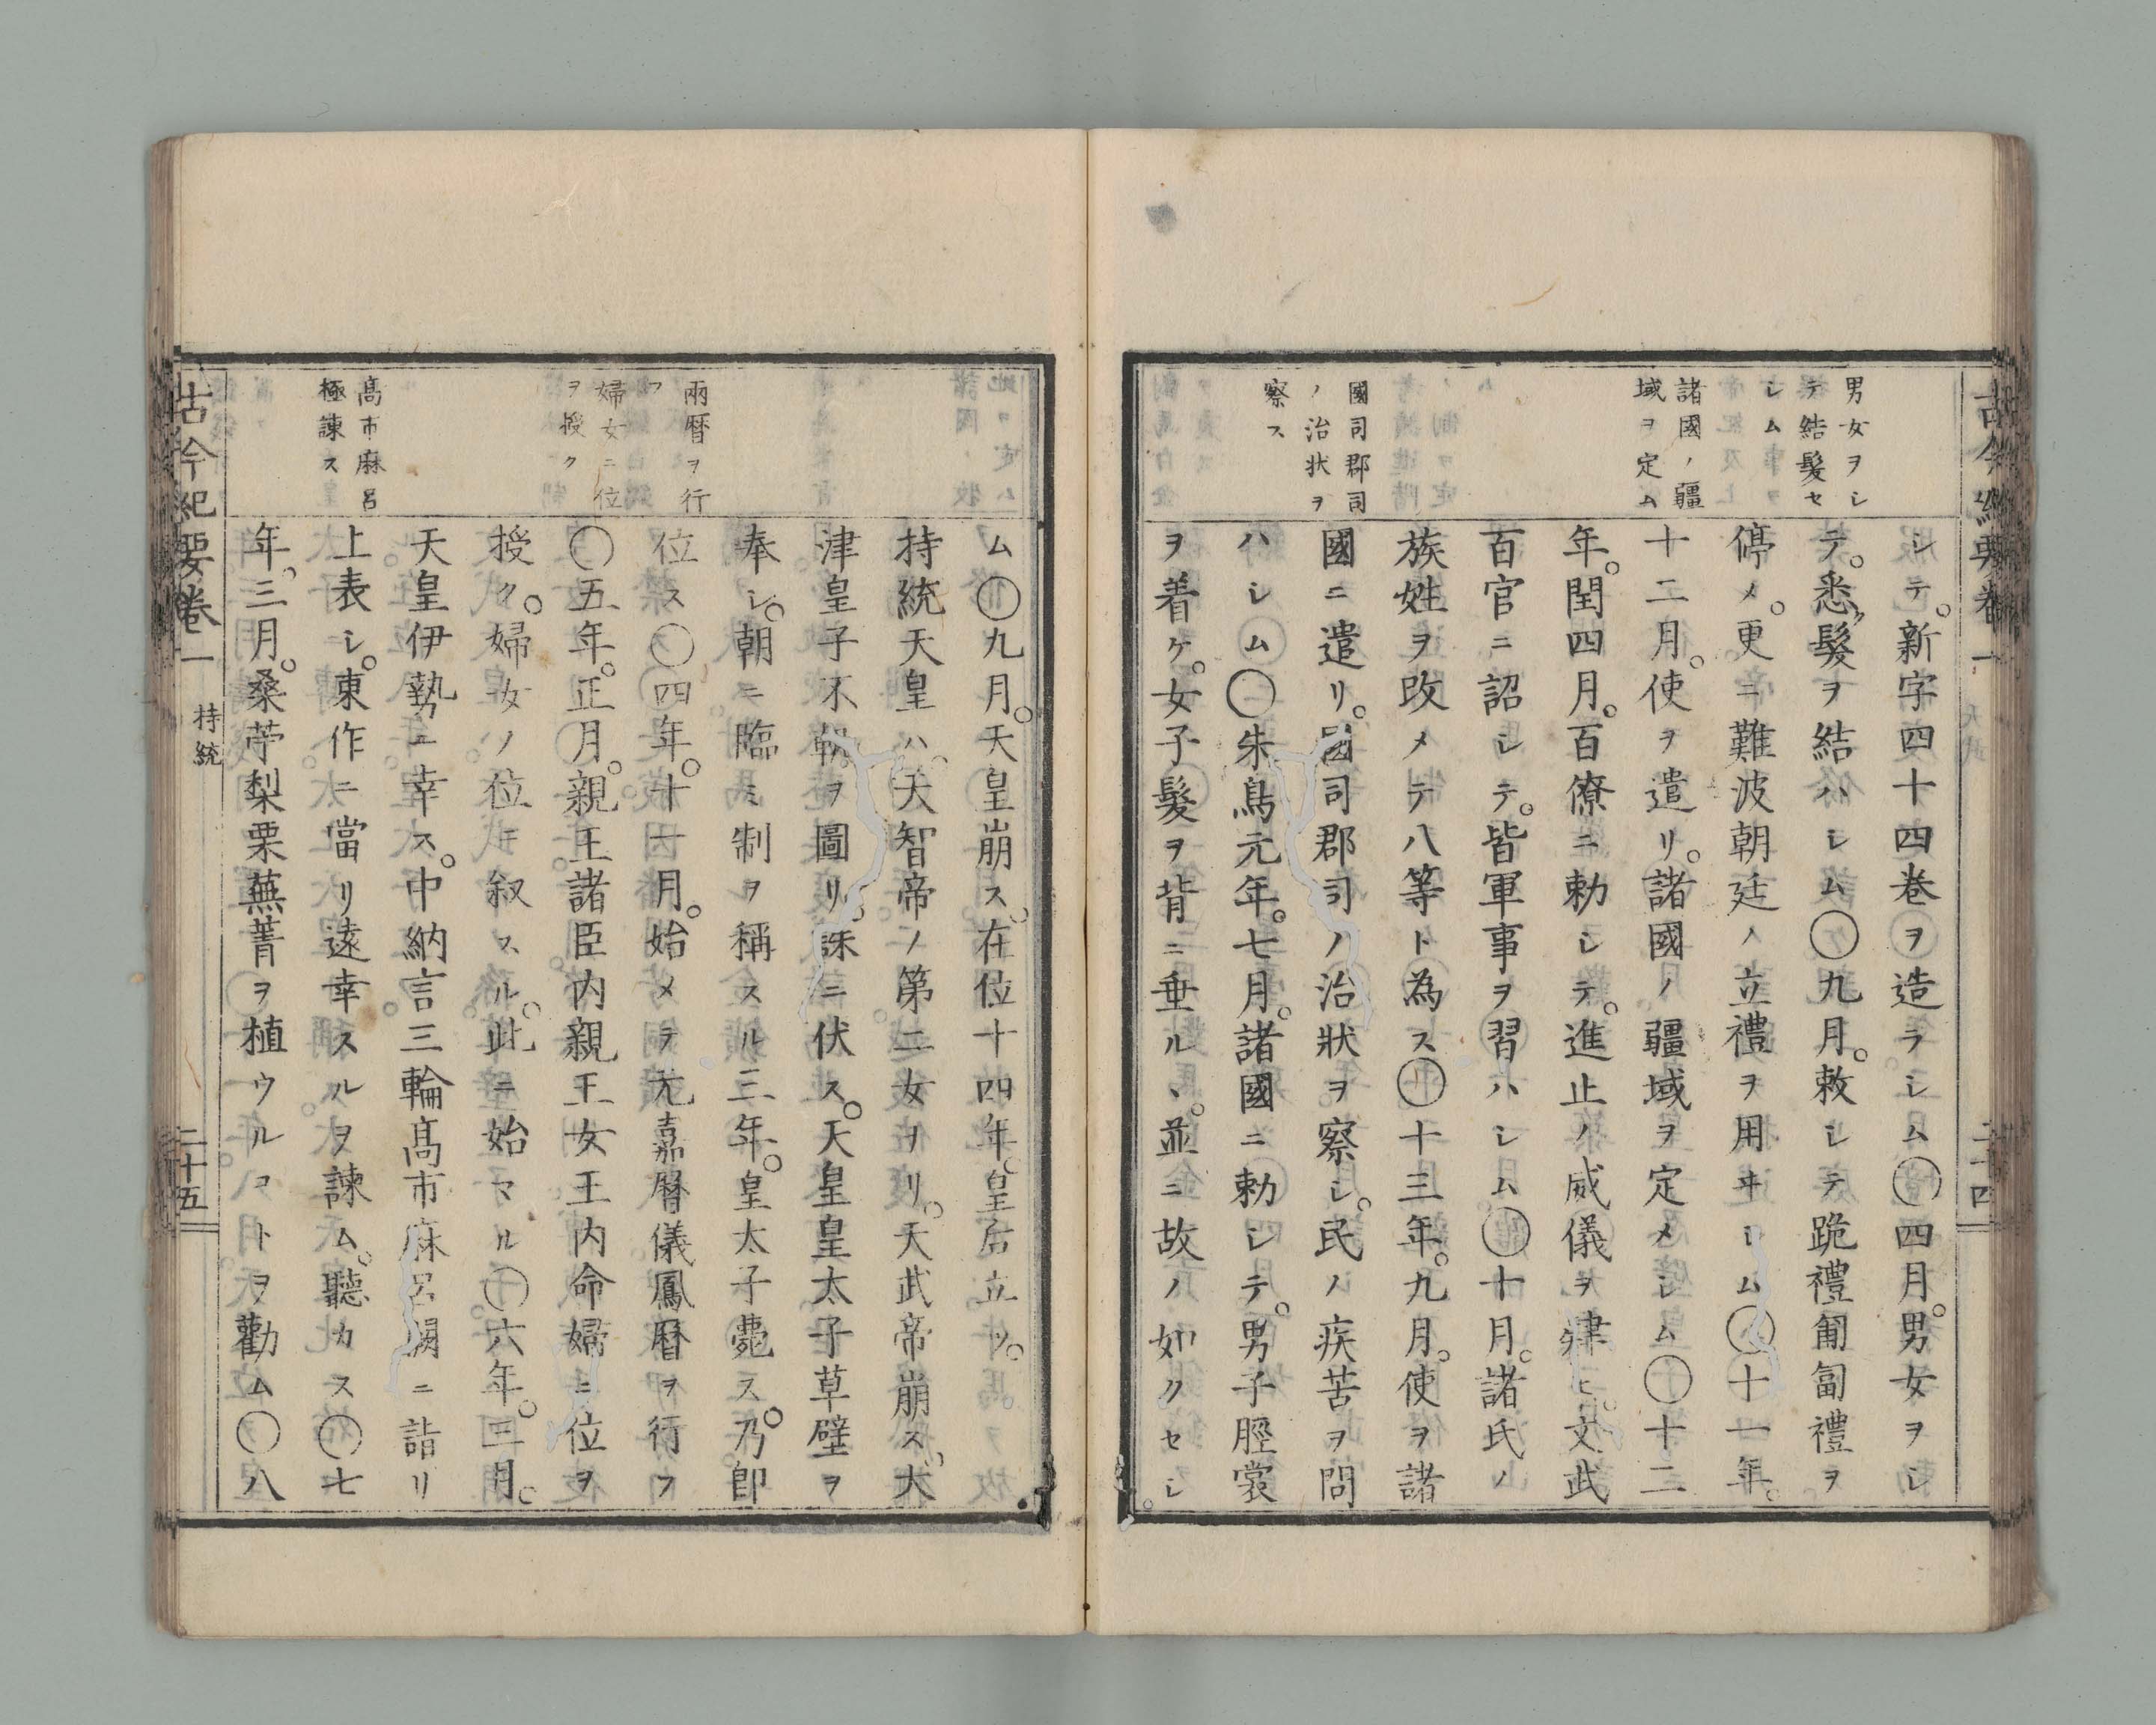 古今紀要卷一
二十四
男女ヲシ
テ結髮セ
シム
諸國ノ疆
域ヲ定ム
國司郡司
ノ治狀ヲ
察ス
シテ。新字四十四卷ヲ造ラシム〇四月。男女ヲシ
テ。悉ク髮ヲ結ハシム〇九月。敕シテ跪禮匍匐禮ヲ
停メ。更ニ難波朝廷ノ立禮ヲ用ヰシム〇十一年。
十二月。使ヲ遣リ。諸國ノ疆域ヲ定メシム〇十二
年。閏四月。百僚ニ勅シテ。進止ノ威儀ヲ肄ヒ。文武
百官ニ詔シテ。皆軍事ヲ習ハシム〇十月。諸氏ノ
族姓ヲ改メテ八等ト為ス〇十三年。九月。使ヲ諸
國ニ遣リ。國司郡司ノ治狀ヲ察シ。民ノ疾苦ヲ問
ハシム〇朱鳥元年。七月。諸國ニ勅シテ。男子脛裳
ヲ着ケ。女子髮ヲ背ニ垂ルヽ。並ニ故ノ如クセシ
ム〇九月。天皇崩ス。在位十四年。皇后立ツ。
持統天皇ハ。天智帝ノ第二女ヲリ。天武帝崩ス。大
津皇子不軌ヲ圖リ。誅ニ伏ス。天皇皇太子草壁ヲ
奉シ。朝ニ臨ミ制ヲ稱スル三年。皇太子薨ス。乃卽
位ス〇四年。十一月。始メテ元嘉曆儀鳳曆ヲ行フ
〇五年。正月。親王諸臣內親王女王內命婦ニ位ヲ
授ク。婦女ノ位ニ叙スル。此ニ始マル〇六年。三月。
天皇伊勢ニ幸ス。中納言三輪高市麻呂闕ニ詣リ
上表シ。東作ニ當リ遠幸スルヲ諫ム。聽カス〇七
年。三月。桑苧梨栗蕪菁ヲ植ウルコトヲ勸ム〇八
兩曆ヲ行
フ
婦女ニ位
ヲ授ク
高市麻呂
極諫ス
古今紀要卷一
持統
二十五